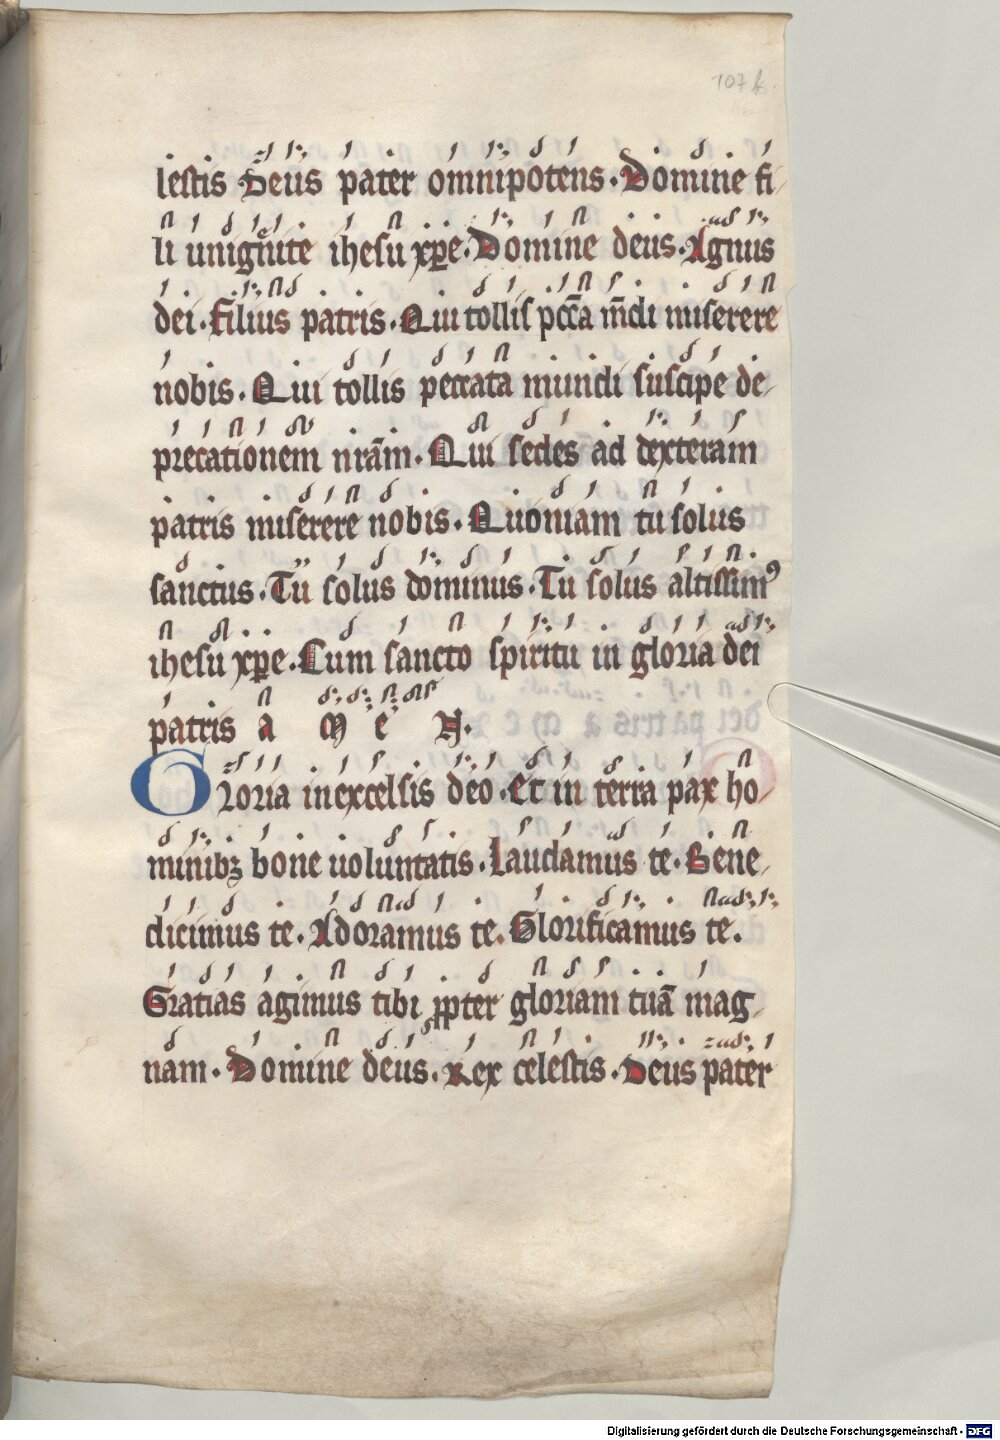 107 b.
lestis Deus pater omnipotens. Domine fi
li unigenite ihesu xp̄e. Domine deus. Agnus
dei. Filius patris. Qui tollis pcc̄a mūdi miserere
nobis. Qui tollis peccata mundi suscipe de
precationem nr̄am. Qui sedes ad dexteram
patris miserere nobis. Quoniam tu solus
sanctus. Tu solus dominus. Tu solus altissimꝰ
ihesu xp̄e. Cum sancto spiritu in gloria dei
patris a m e N.
Gloria in excelsis deo. Et in terra pax ho
minibꝫ bone uoluntatis. Laudamus te. Bene
dicimus te. Adoramus te. Glorificamus te.
Gratias agimus tibi ꝓpter gloriam tuā mag
nam. Domine deus. Rex celestis. Deus pater
Digitalisierung gefördert durch die Deutsche Forschungsgemeinschaft - DFG